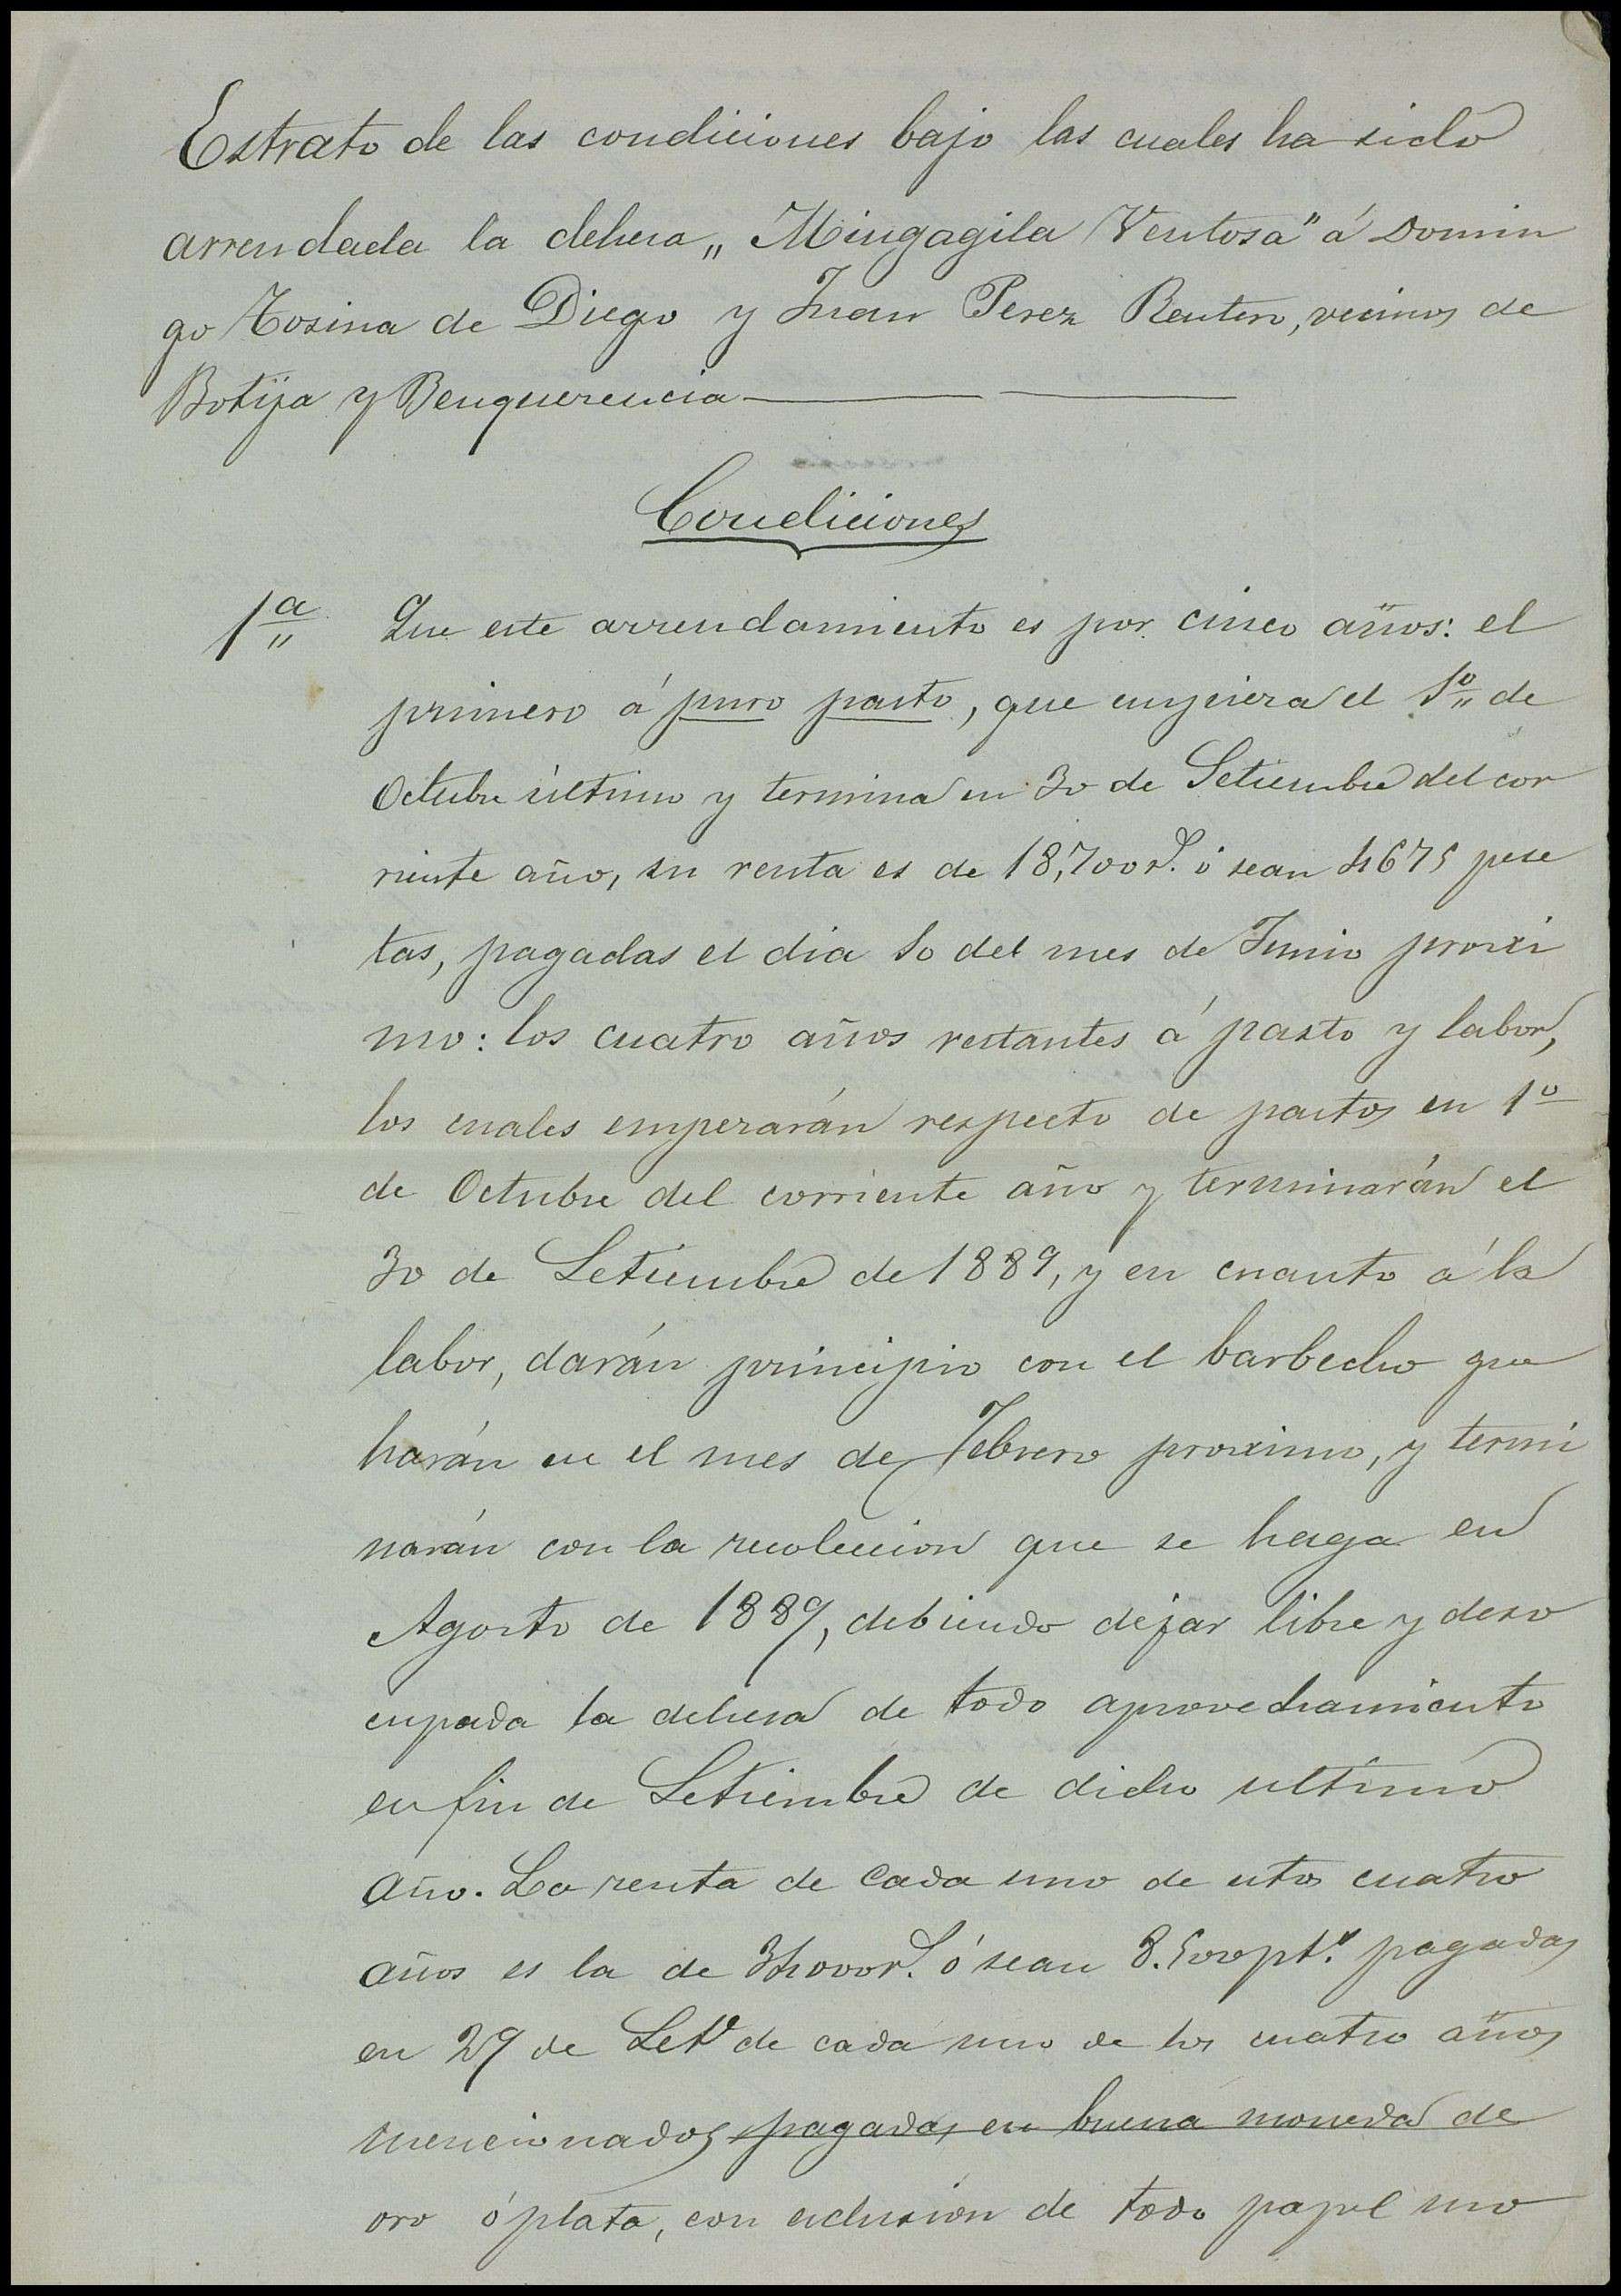 Estrato de las condiciones bajo las cuales ha sido
arrendada la dehesa „ Mingagila Ventosa" á Domin
go Tosina de Diego y Juan Perez Rentero, vecinos de
Botija y Benquerencia
Condiciones
1ª Que este arrendamiento es por cinco años: el
primero á puro pasto, que empieza el 1º de
Octubre último y termina en 30 de Setiembre del cor
riente año, su renta es de 18,700 rs. ó sean 4675 pese
tas, pagadas el dia 10 del mes de Junio proxi
mo: los cuatro años restantes á pasto y labor,
los cuales empezarán respecto de pastos en 1º
de Octubre del corriente año y terminarán el
30 de Setiembre de 1889, y en cuanto á la
labor, darán principio con el barbecho que
harán en el mes de Febrero proximo, y termi
narán con la recoleccion que se haga en
Agosto de 1889, debiendo dejar libre y deso
cupada la dehesa de todo aprovechamiento
en fin de Setiembre de dicho ultimo
año. La renta de cada uno de estos cuatro
años es la de 34000 rs. ó sean 8.500 pts. pagadas
en 29 de Setе de cada uno de los cuatro años
mencionados pagadas en buena moneda de
oro ó plata, con exclusion de todo papel mo